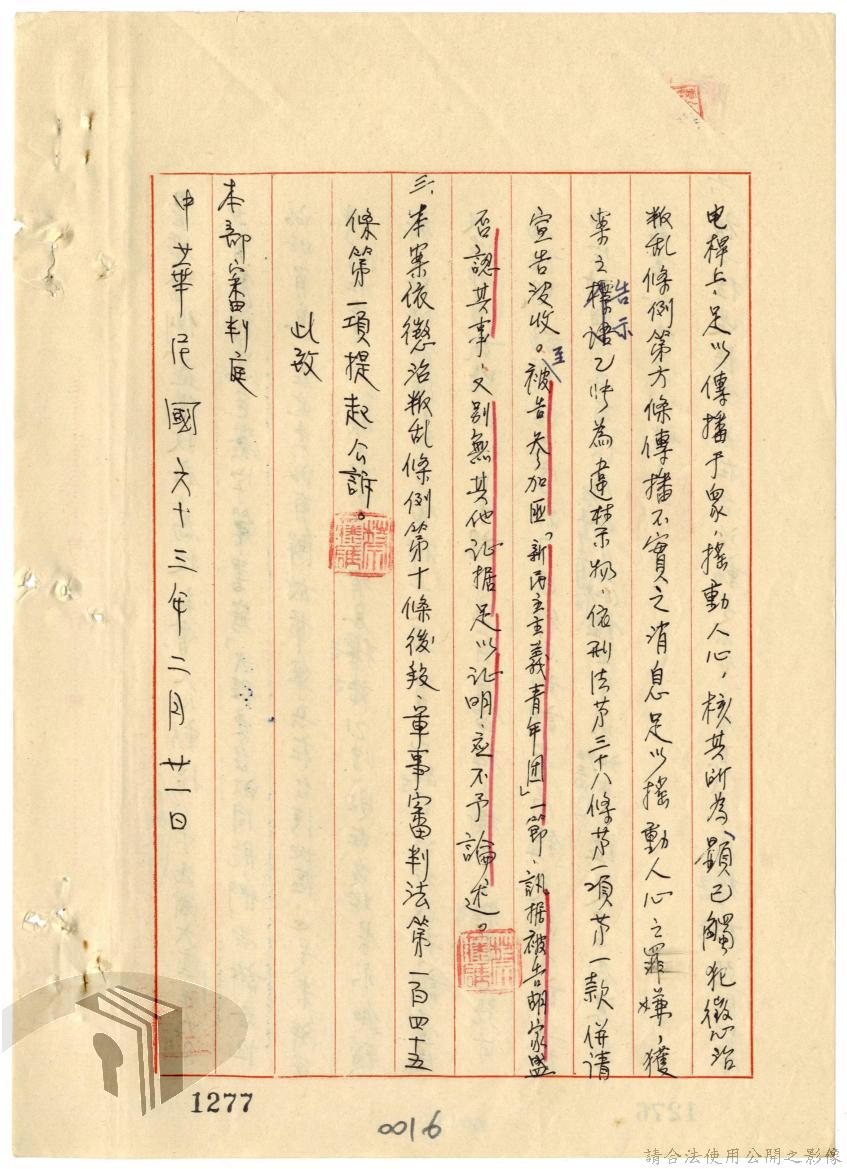 电桿上，足以傳播于眾，搖動人心，核其所為，顯已觸犯懲治
叛乱條例第六條傳播不實之消息足以搖動人心之罪嫌，獲
案之標語告示乙件為違禁物，依刑法第三十八條第一項第一款併請
宣告沒收。至被告參加匪「新民主主義青年团」一節，訊据被告胡家盛
否認其事，又別無其他证据足以证明，应不予論述。
三、本案依懲治叛乱條例第十條後段、軍事審判法第一百四十五
條第一項提起公訴。
此致
本部審判庭
中華民國六十三年二月廿一日
1277
0016
請合法使用公開之影像